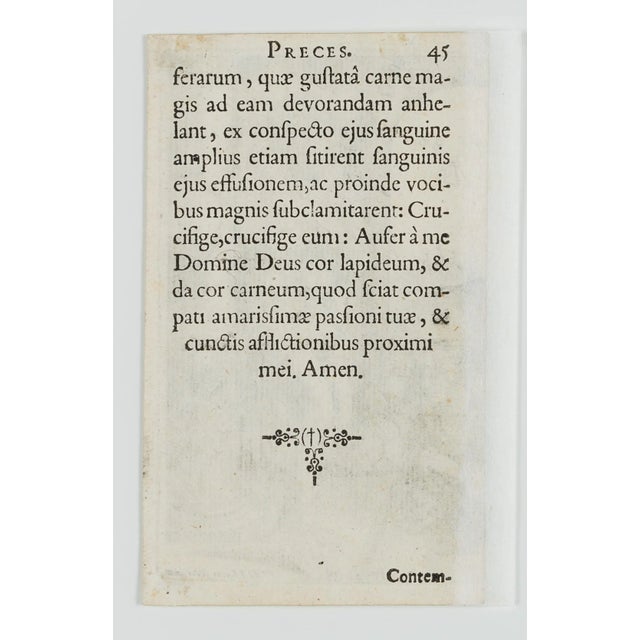 PRECES. 45
ferarum, quæ guſtatâ carne ma-
gis ad eam devorandam anhe-
lant, ex conſpecto ejus ſanguine
amplius etiam ſitirent ſanguinis
ejus effuſionem, ac proinde voci-
bus magnis ſubclamitarent: Cru-
cifige, crucifige eum: Aufer à me
Domine Deus cor lapideum, &
da cor carneum, quod ſciat com-
pati amarissimæ paſſioni tuæ, &
cunctis afflictionibus proximi
mei. Amen.
(†)
Contem-